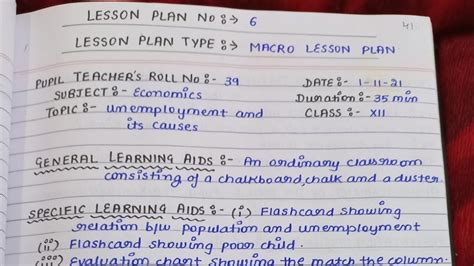 41
LESSON PLAN NO :→ 6
LESSON PLAN TYPE :→ MACRO LESSON PLAN
PUPIL TEACHER'S ROLL NO :- 39 DATE :- 1-11-21
SUBJECT :- Economics Duration :- 35 min
TOPIC :- unemployment and its causes CLASS :- XII
GENERAL LEARNING AIDS :- An ordinary classroom
consisting of a chalkboard, chalk and a duster.
SPECIFIC LEARNING AIDS :- (i) Flashcard showing
relation b/w population and unemployment
(ii) Flashcard showing poor child.
(iii) Evaluation chart showing the match the column.